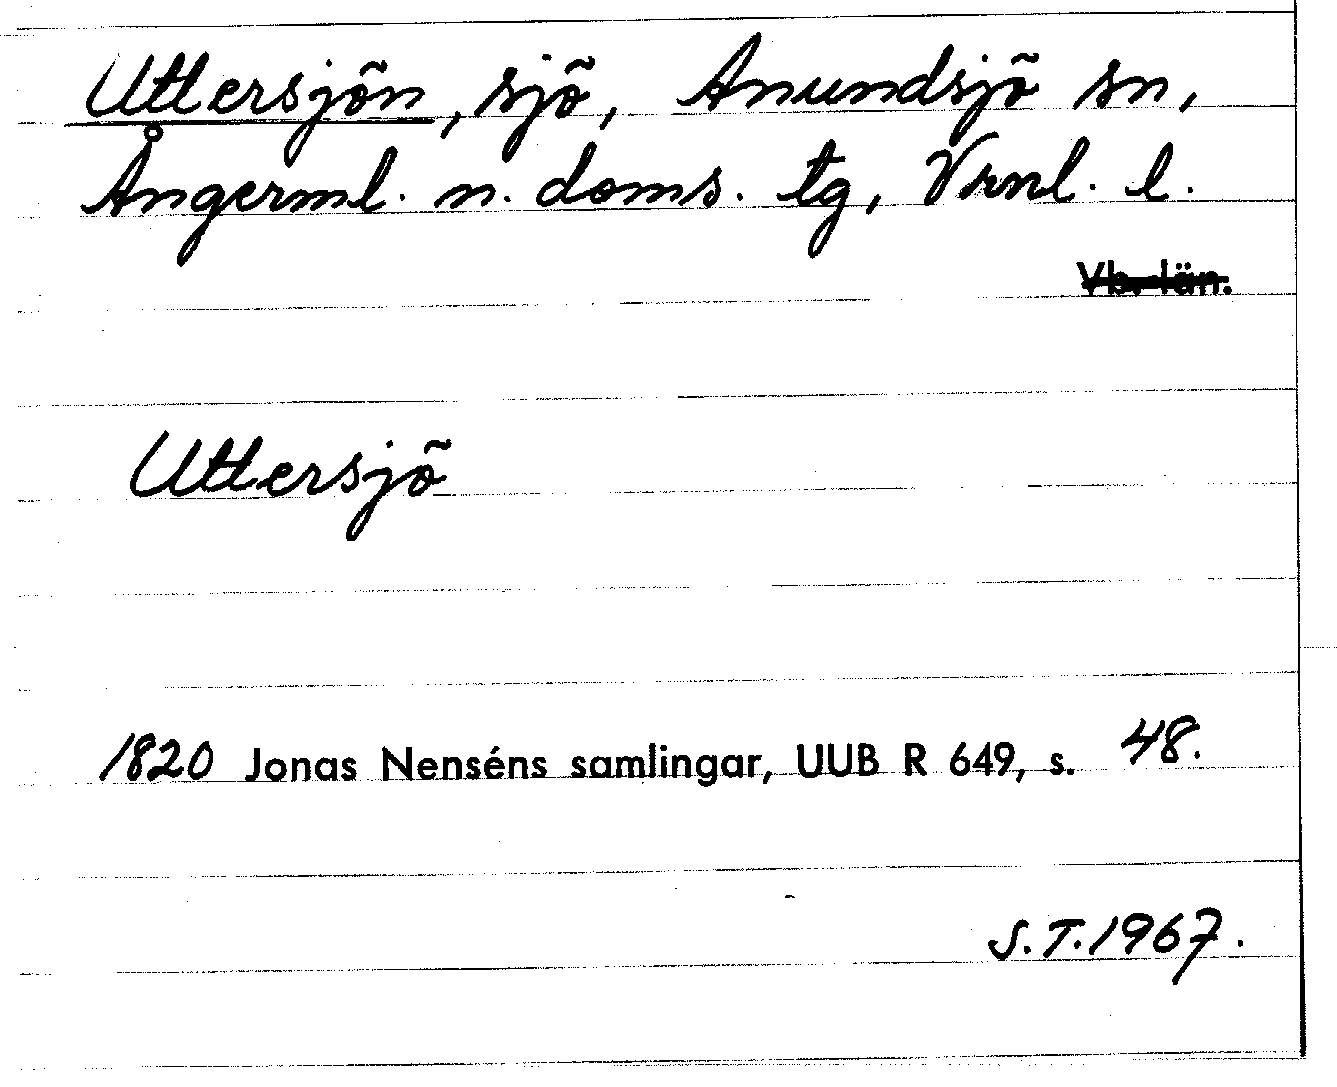 Uttersjön, sjö, Anundsjö sn,
Ångerml. n. doms. tg, Vrnl. l.
Vb. län.
Uttersjö
1820 Jonas Nenséns samlingar, UUB R 649, s. 48.
S.T. 1967.